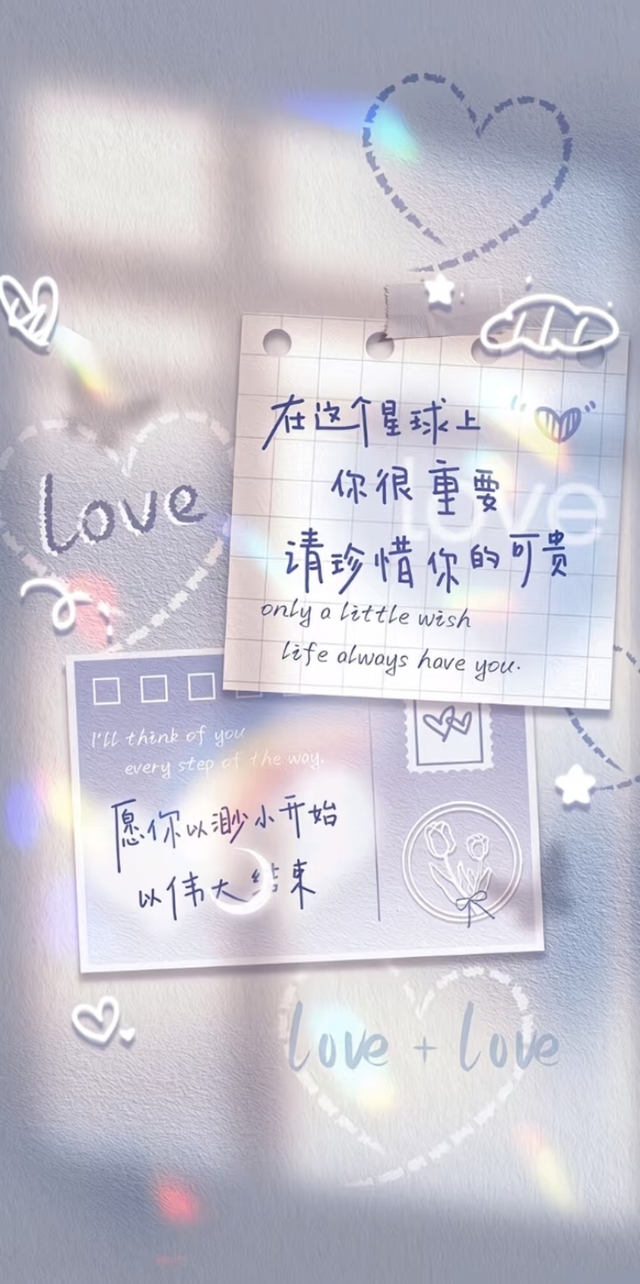 在这个星球上
love
你很重要
love
请珍惜你的可贵
only a little wish
life always have you.
I'll think of you
every step of the way.
愿你以渺小开始
以伟大结束
love + love